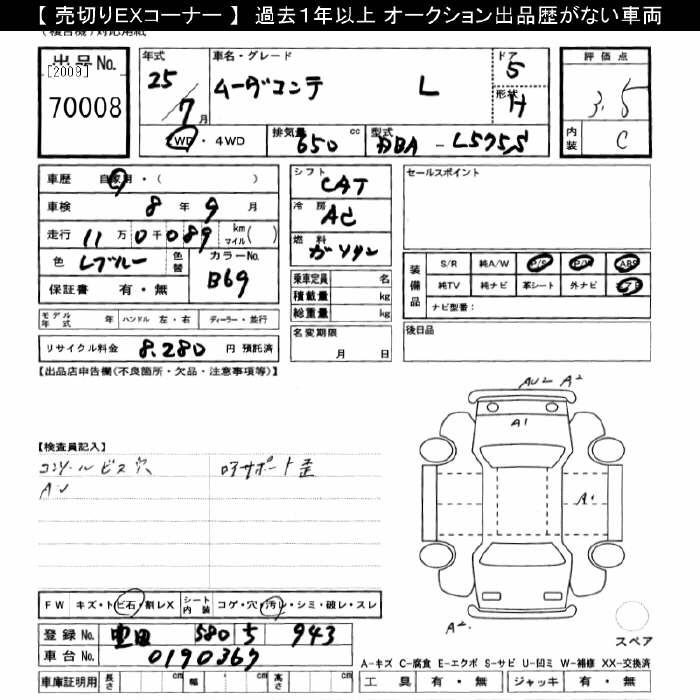 【 売切りEXコーナー 】 過去1年以上 オークション出品歴がない車両
出品No.
[2009]
70008
年式
25
7月
車名・グレード
ムーヴコンテ L
ドア
5
形状
H
評価点
3.5
内装
C
2WD・4WD
排気量 650 cc
型式 DBA - L575S
車歴 自家用・( )
車検 8年 9月
走行 11万 0千 089 km マイル( )
色 Lブルー 色替
カラーNo. B69
保証書 有・無
モデル年式 年
ハンドル 左・右
ディーラー・並行
リサイクル料金 8.280 円 預託済
シフト CAT
冷房 AC
燃料 ガソリン
乗車定員 名
積載量 kg
総重量 kg
名変期限
月 日
セールスポイント
装備品
S/R 純A/W P/S P/W ABS
純TV 純ナビ 革シート 外ナビ
ナビ型番:
後日品
【出品店申告欄(不良箇所・欠品・注意事項等)】
【検査員記入】
コンソールビス穴
ロアサポート歪
AU
AU2 A2
A1
A1
A2
スペア
FW キズ・トビ石・割レX
シート内装 コゲ・穴・汚レ・シミ・破レ・スレ
登録No. 豊田 580 ち 943
車台No. 0190367
A-キズ C-腐食 E-エクボ S-サビ U-凹ミ W-補修 XX-交換済
車庫証明用 長さ cm 幅 cm 高さ cm
工具 有・無 ジャッキ 有・無